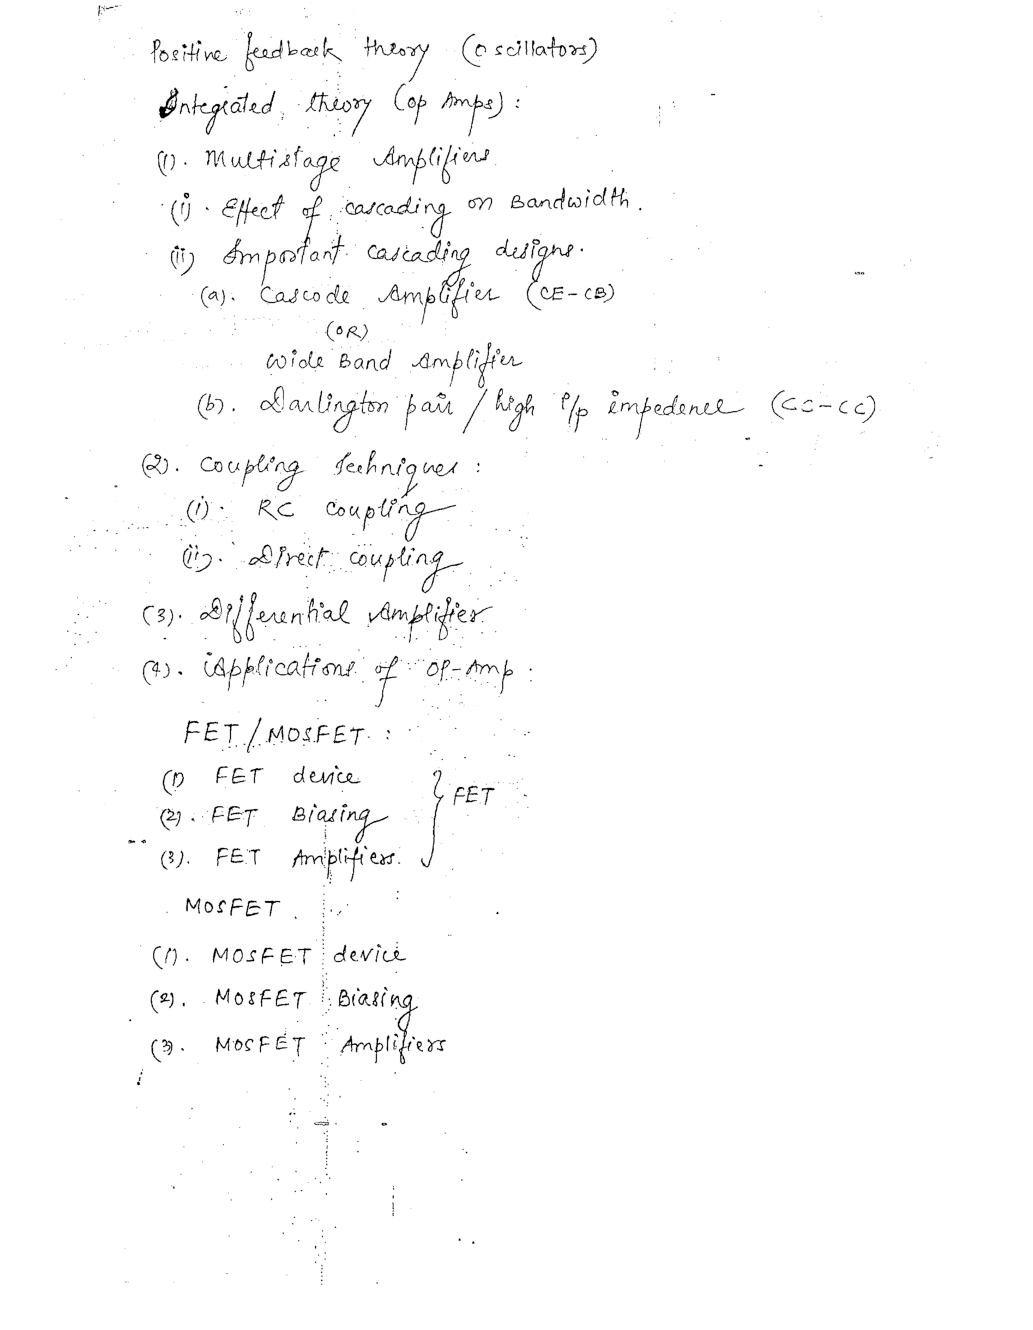 Positive feedback theory (oscillators)
Integrated theory (op Amps) :
(1). Multistage Amplifiers
(i). Effect of cascading on Bandwidth.
(ii) Important cascading designs.
(a). Cascode Amplifier (CE-CB)
(OR)
Wide Band Amplifier
(b). Darlington pair / high i/p impedence (CC-CC)
(2). Coupling Techniques :
(i). RC coupling
(ii). Direct coupling
(3). Differential Amplifier
(4). Applications of OP-Amp.
FET / MOSFET :
(1) FET device
(2). FET Biasing } FET
(3). FET Amplifiers.
MOSFET
(1). MOSFET device
(2). MOSFET Biasing
(3). MOSFET Amplifiers